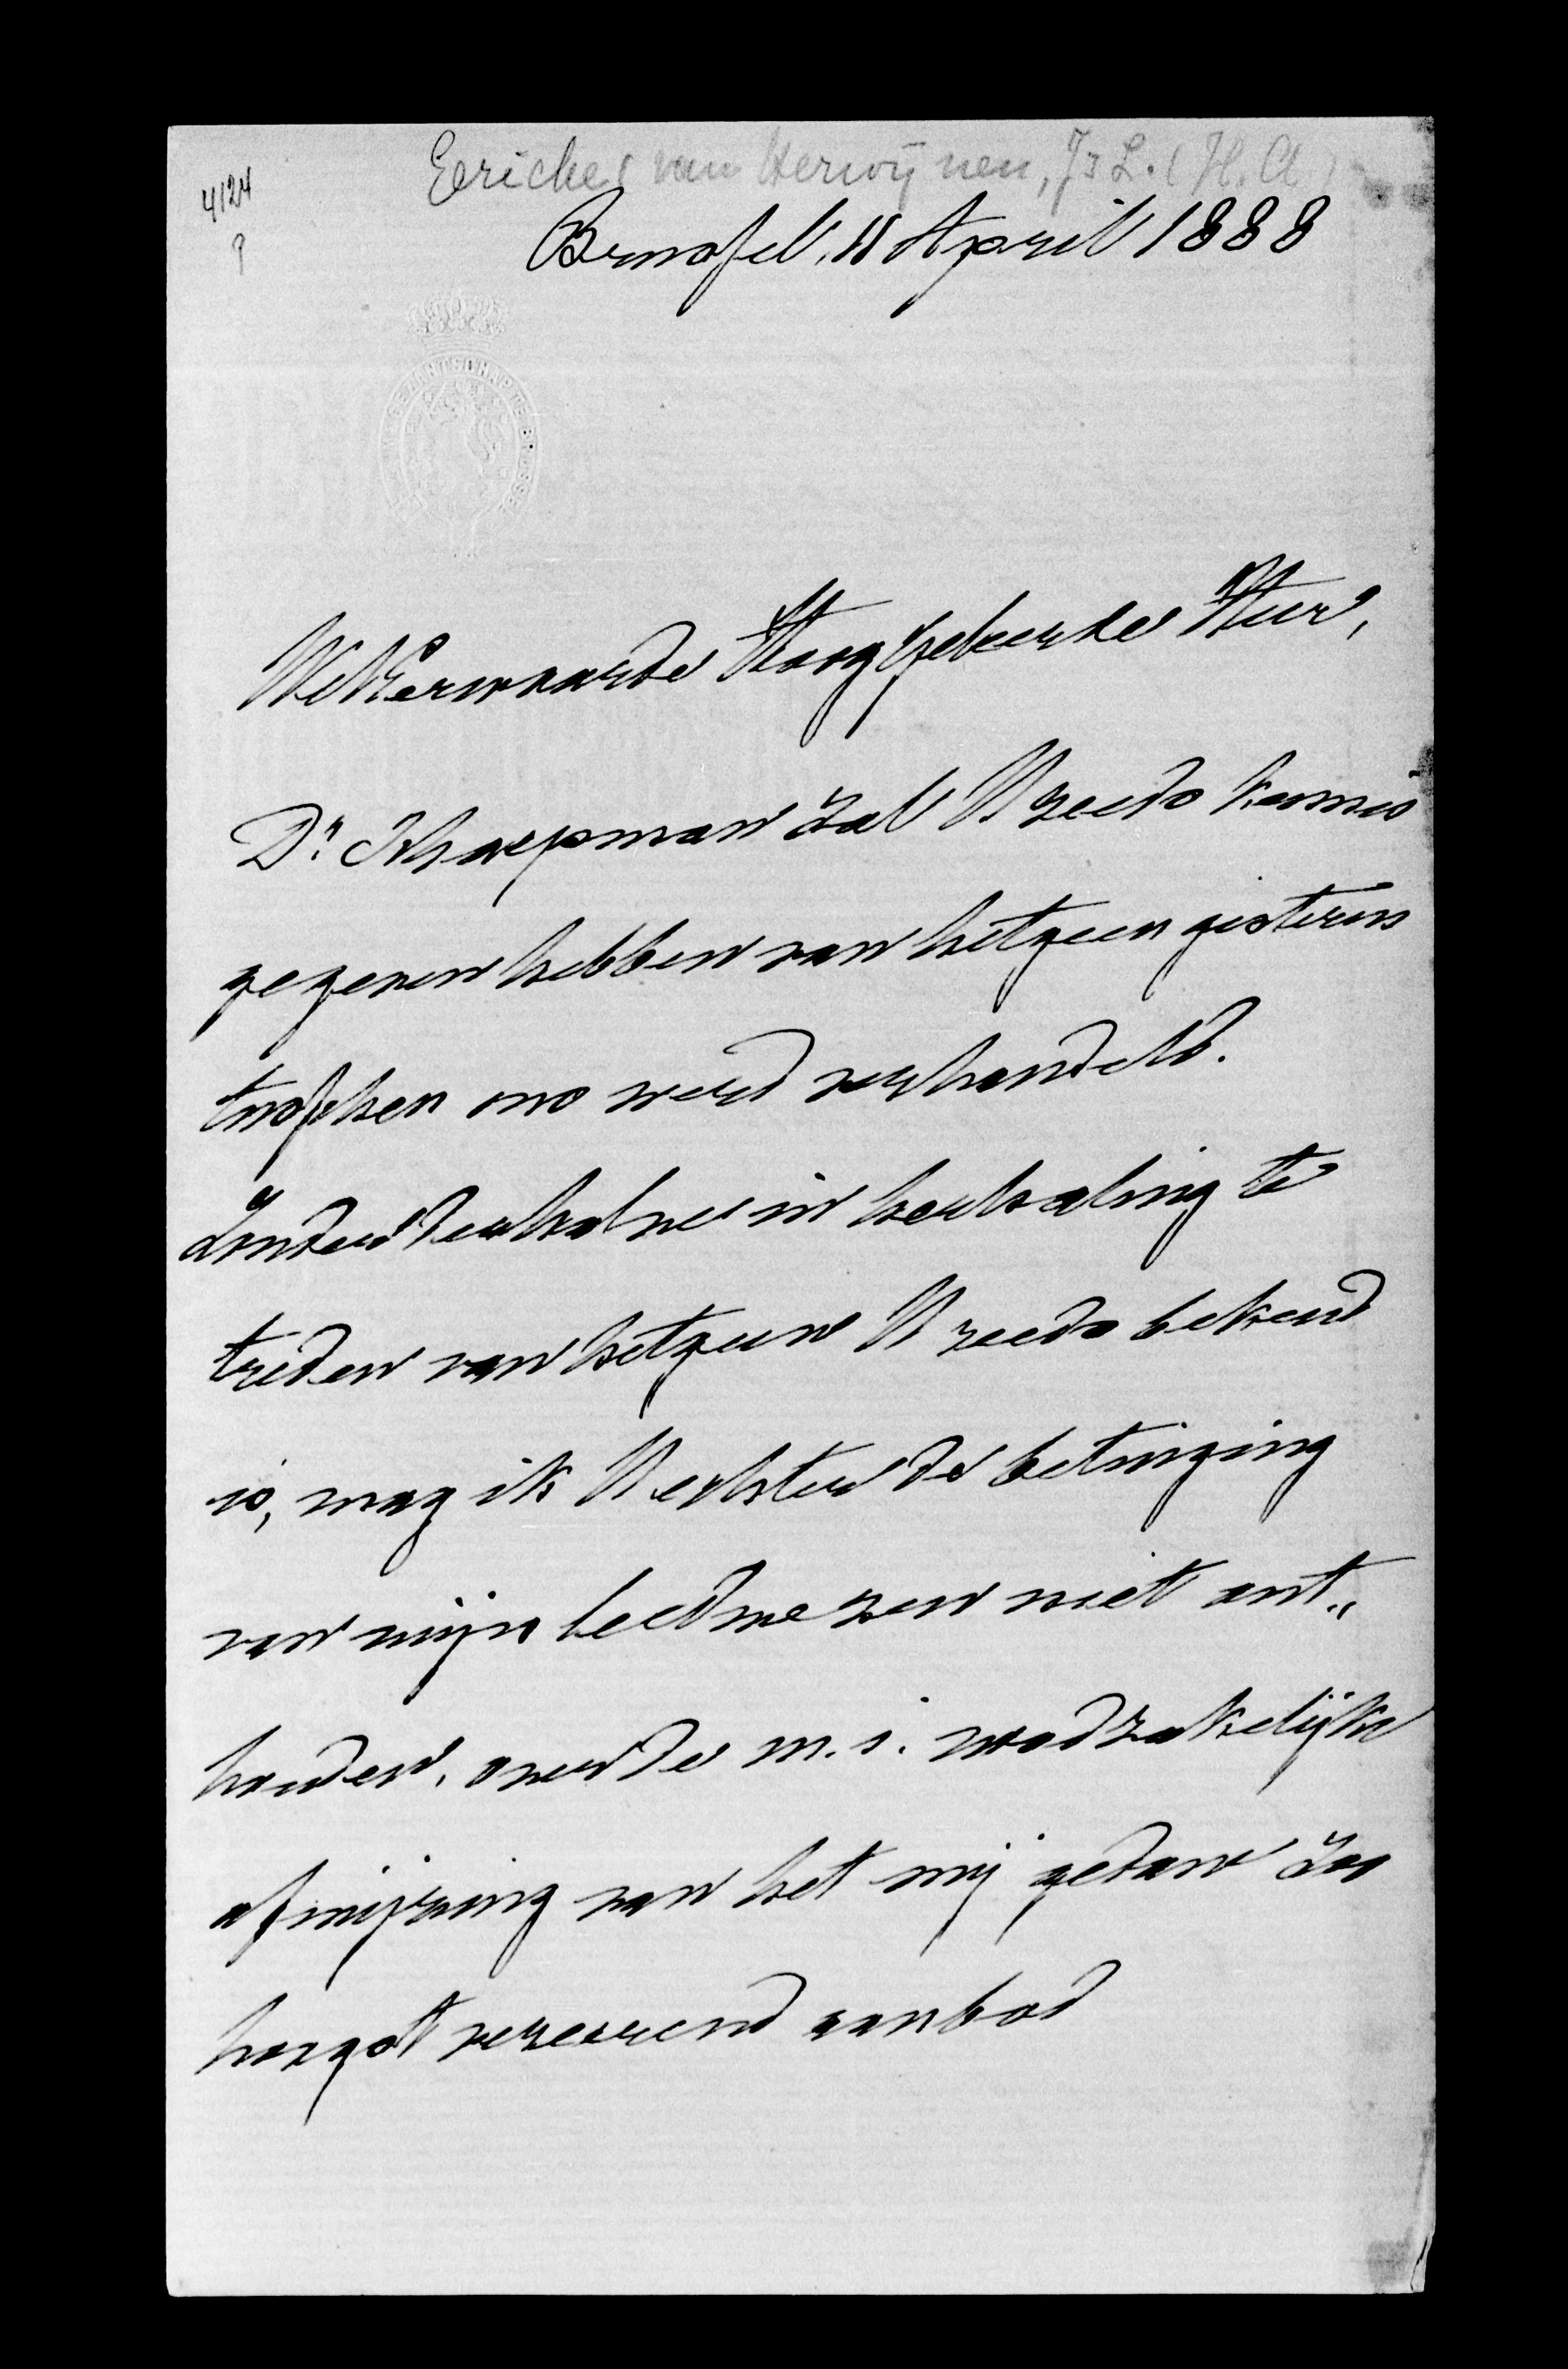 4124
?
Gericke van Herwijnen, J. L. (H. A.)
Brussel, 11 April 1888
GEZANTSCHAP TE BRUSSEL
WelEerwaarde Hoog Geleerde Heer,
Dr. Schaepman zal U reeds kennis
gegeven hebben van hetgeen gisteren
tusschen ons werd verhandeld.
Zonder derhalve in herhaling te
treden van hetgeen U reeds bekend
is, mag ik U echter de betuiging
van mijn leedwezen niet ont„
houden, over de m. i. noodzakelijke
afwijzing van het mij gedane zoo
hoogst vereerend aanbod